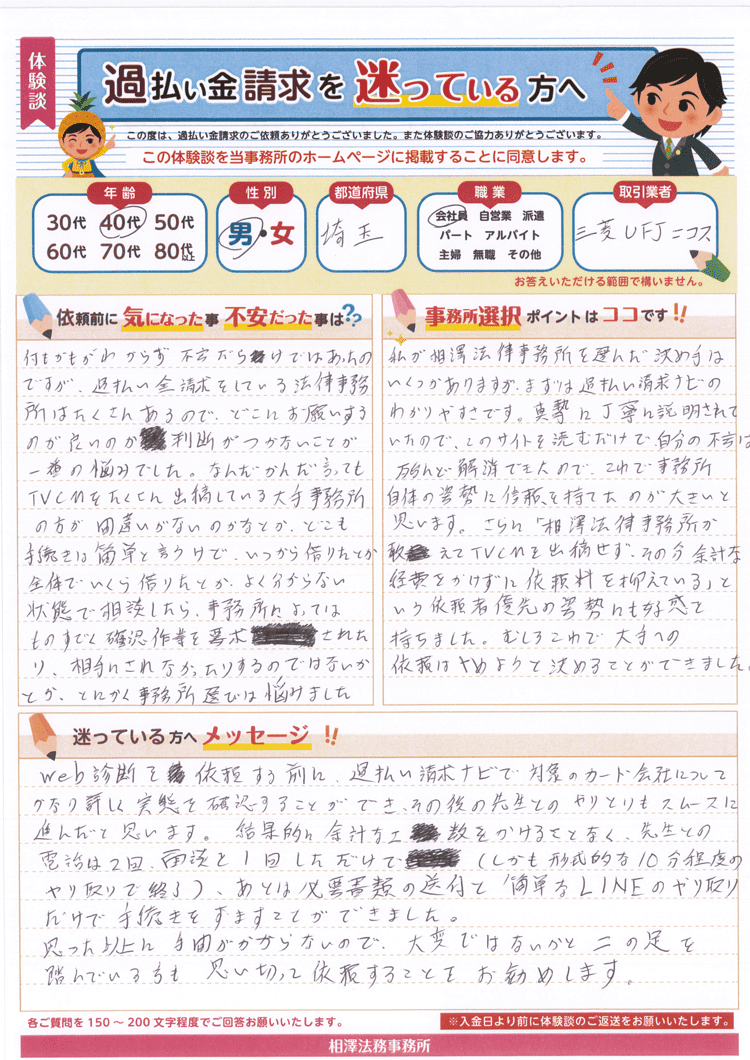 体験談
過払い金請求を迷っている方へ
この度は、過払い金請求のご依頼ありがとうございました。また体験談のご協力ありがとうございます。
この体験談を当事務所のホームページに掲載することに同意します。
年齢
30代 40代 50代
60代 70代 80代以上
性別
男・女
都道府県
埼玉
職業
会社員 自営業 派遣
パート アルバイト
主婦 無職 その他
取引業者
三菱UFJニコス
お答えいただける範囲で構いません。
依頼前に気になった事 不安だった事は??
何もかもがわからず不安だらけではあったの
ですが、過払い金請求をしている法律事務
所はたくさんあるので、どこにお願いする
のが良いのか判断がつかないことが
一番の悩みでした。なんだかんだ言っても
TVCMをたくさん出稿している大手事務所
の方が間違いがないのかなとか、どこも
手続きは簡単と言うけで、いつから借りたとか
全体でいくら借りたとか、よく分からない
状態で相談したら、事務所によっては
ものすごく確認作業を要求された
り、相手にされなかったりするのではないか
とか、とにかく事務所選びは悩みました
事務所選択ポイントはココです!!
私が相澤法律事務所を選んだ決め手は
いくつかありますが、まずは過払い請求ナビの
わかりやすさです。真摯に丁寧に説明されて
いたので、このサイトを読むだけで自分の不安は
ほとんど解消できたので、これで事務所
自体の姿勢に信頼を持てたのが大きいと
思います。さらに「相澤法律事務所が
敢えてTVCMを出稿せず、その分余計な
経費をかけずに依頼料を抑えている」と
いう依頼者優先の姿勢にも好感を
持ちました。むしろこれで大手への
依頼はやめようと決めることができました。
迷っている方へメッセージ!!
web診断を依頼する前に、過払い請求ナビで対象のカード会社について
かなり詳しく実態を確認することができ、その後の先生とのやりとりもスムースに
進んだと思います。結果的に余計な工数をかけることなく、先生との
電話は2回、面談を1回しただけで(しかも形式的な10分程度の
やり取りで終了)、あとは必要書類の送付と簡単なLINEのやり取り
だけで手続きをすますことができました。
思った以上に手間がかからないので、大変ではないかと二の足を
踏んでいる方も思い切って依頼することをお勧めします。
各ご質問を150～200文字程度でご回答お願いいたします。
※入金日より前に体験談のご返送をお願いいたします。
相澤法務事務所